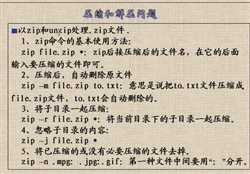 压缩和解压问题
■以zip和unzip处理.zip文件.
1、zip命令的基本使用方法:
zip file.zip *: zip后接压缩后的文件名，在它的后面
输入要压缩的文件即可。
2、压缩后，自动删除原文件
zip -m file.zip to.txt: 意思是说把to.txt文件压缩成
file.zip文件，to.txt会自动删除的。
3、将子目录一起压缩:
zip -r file.zip *: 将当前目录下的子目录一起压缩。
4、忽略子目录的内容:
zip -j file.zip *
5、将已压缩的或没有必要压缩的文件去掉。
zip -n .mpg: .jpg:.gif: 第一种文件中间要用“: ”分开。